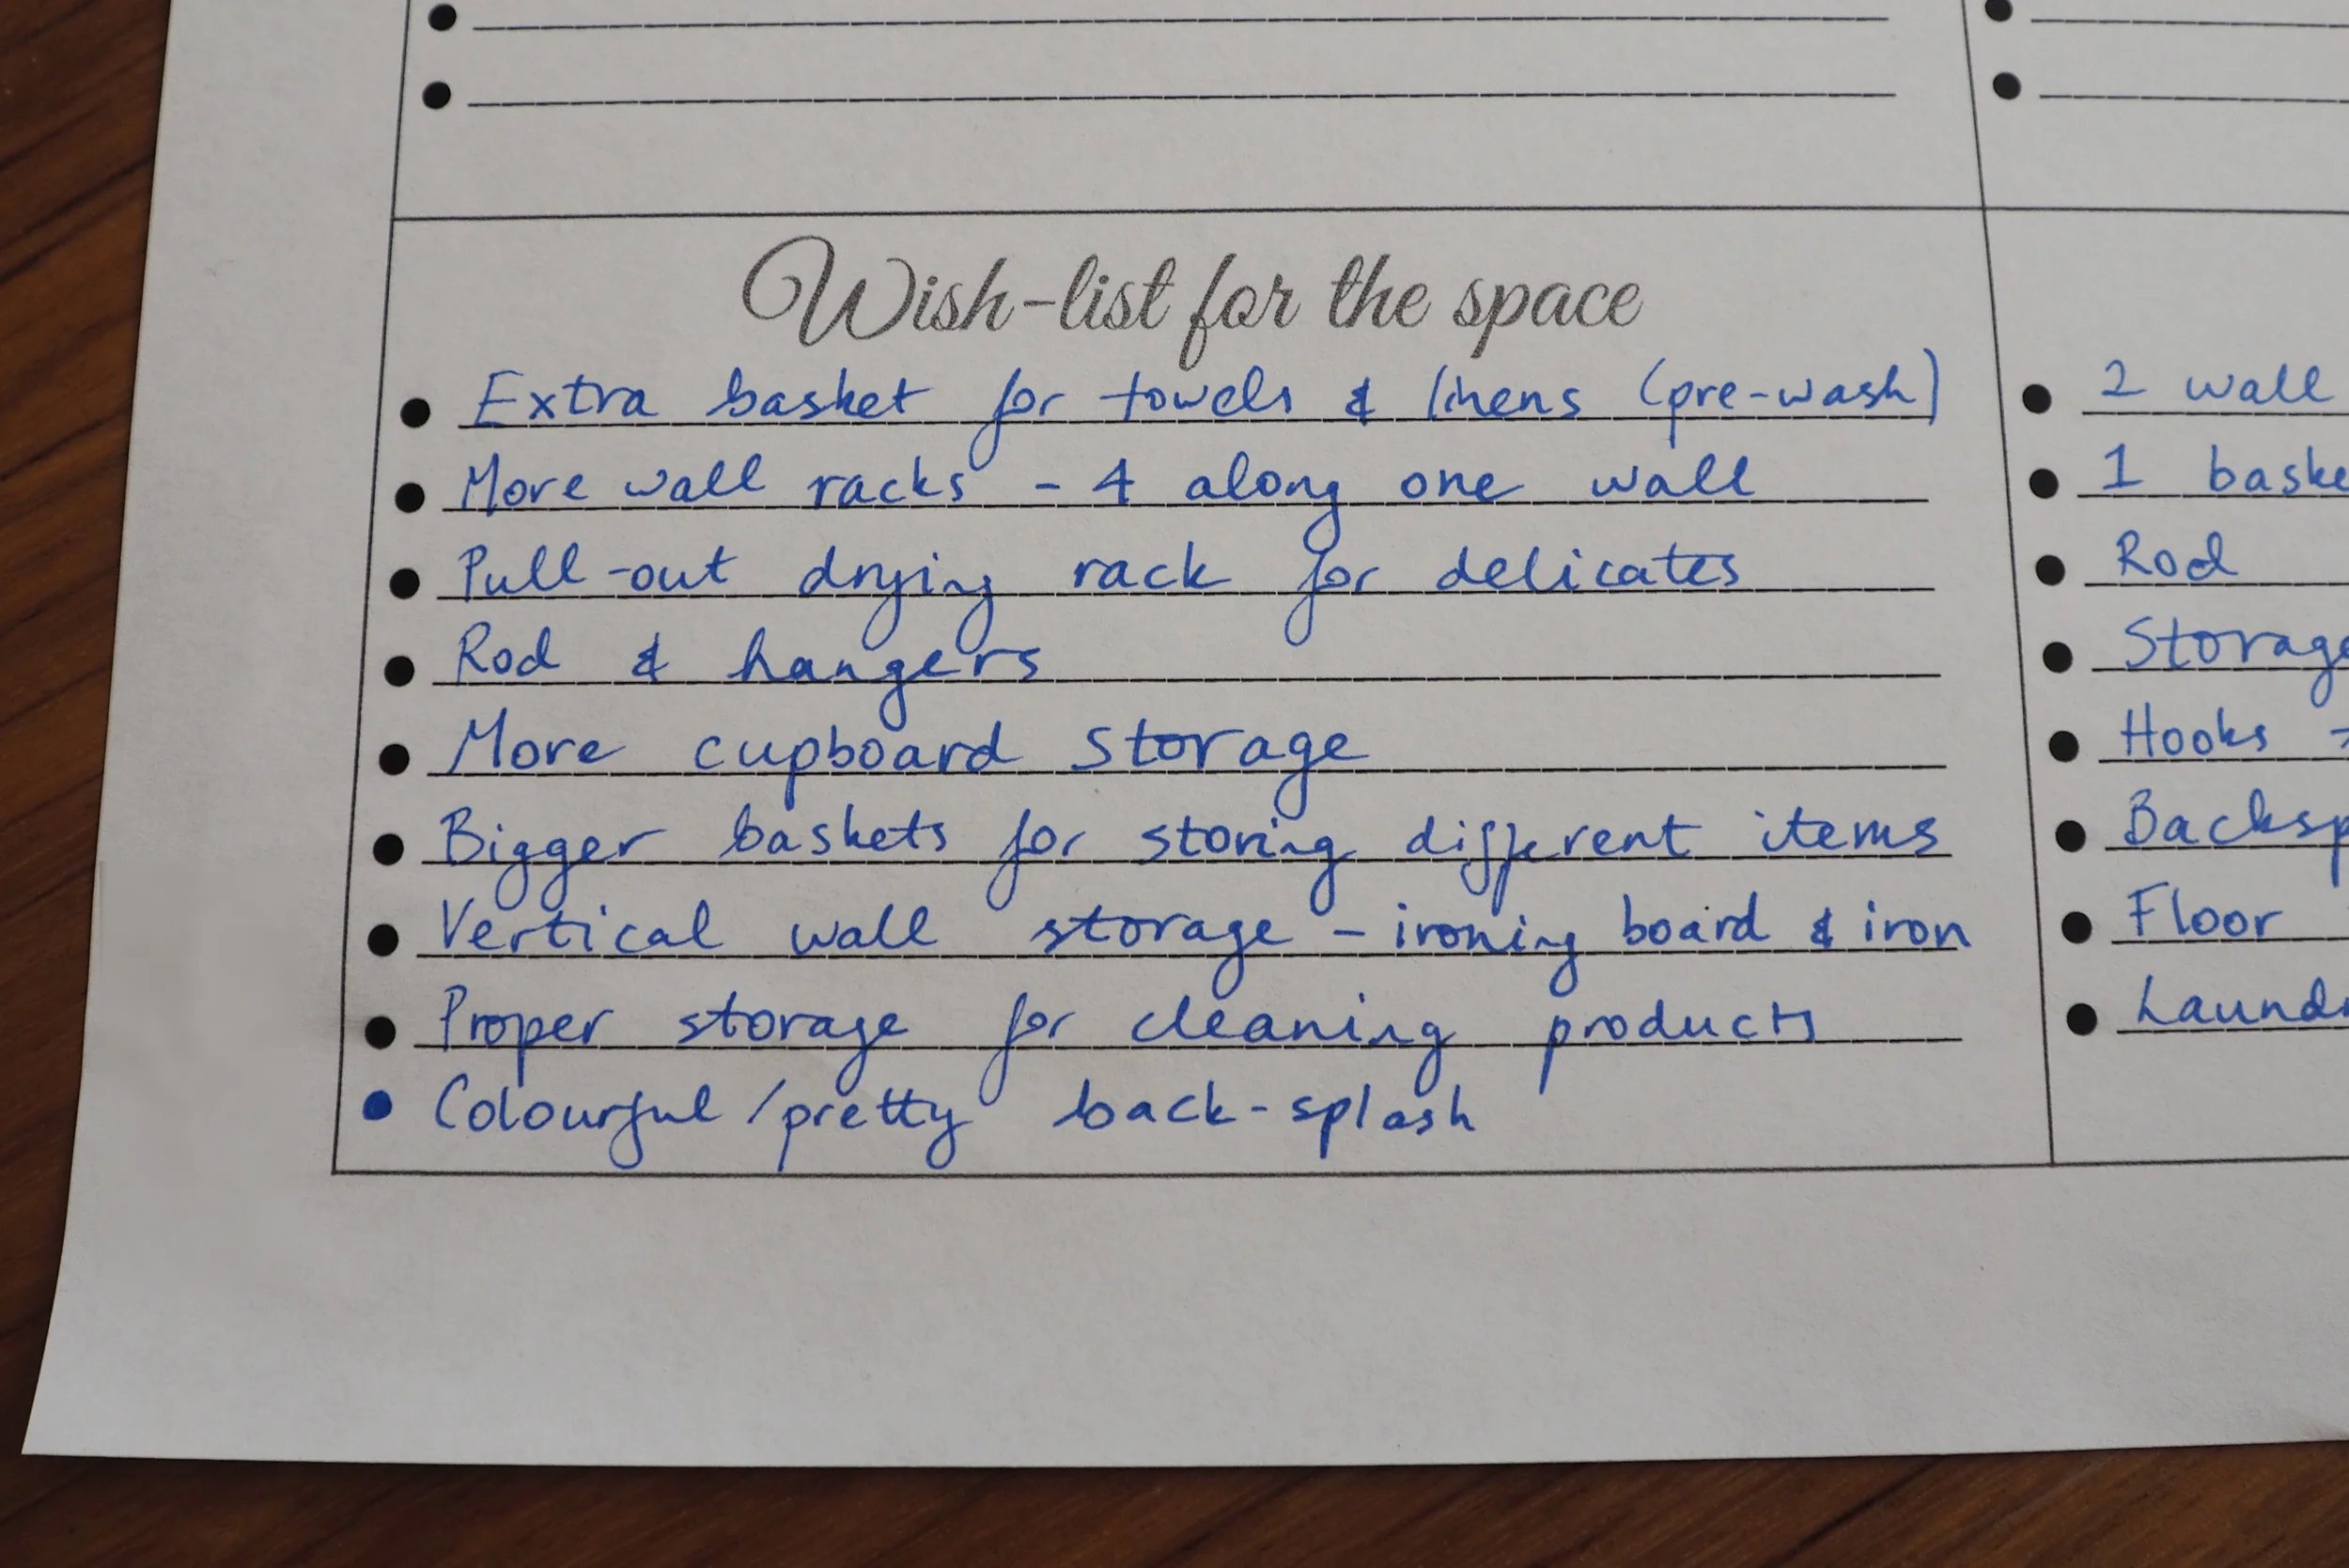 Wish-list for the space
Extra basket for towels & linens (pre-wash)
More wall racks - 4 along one wall
Pull-out drying rack for delicates
Rod & hangers
More cupboard storage
Bigger baskets for storing different items
Vertical wall storage - ironing board & iron
Proper storage for cleaning products
Colourful/pretty back-splash
2 wall
1 baske
Rod
Storage
Hooks
Backsp
Floor
Laund